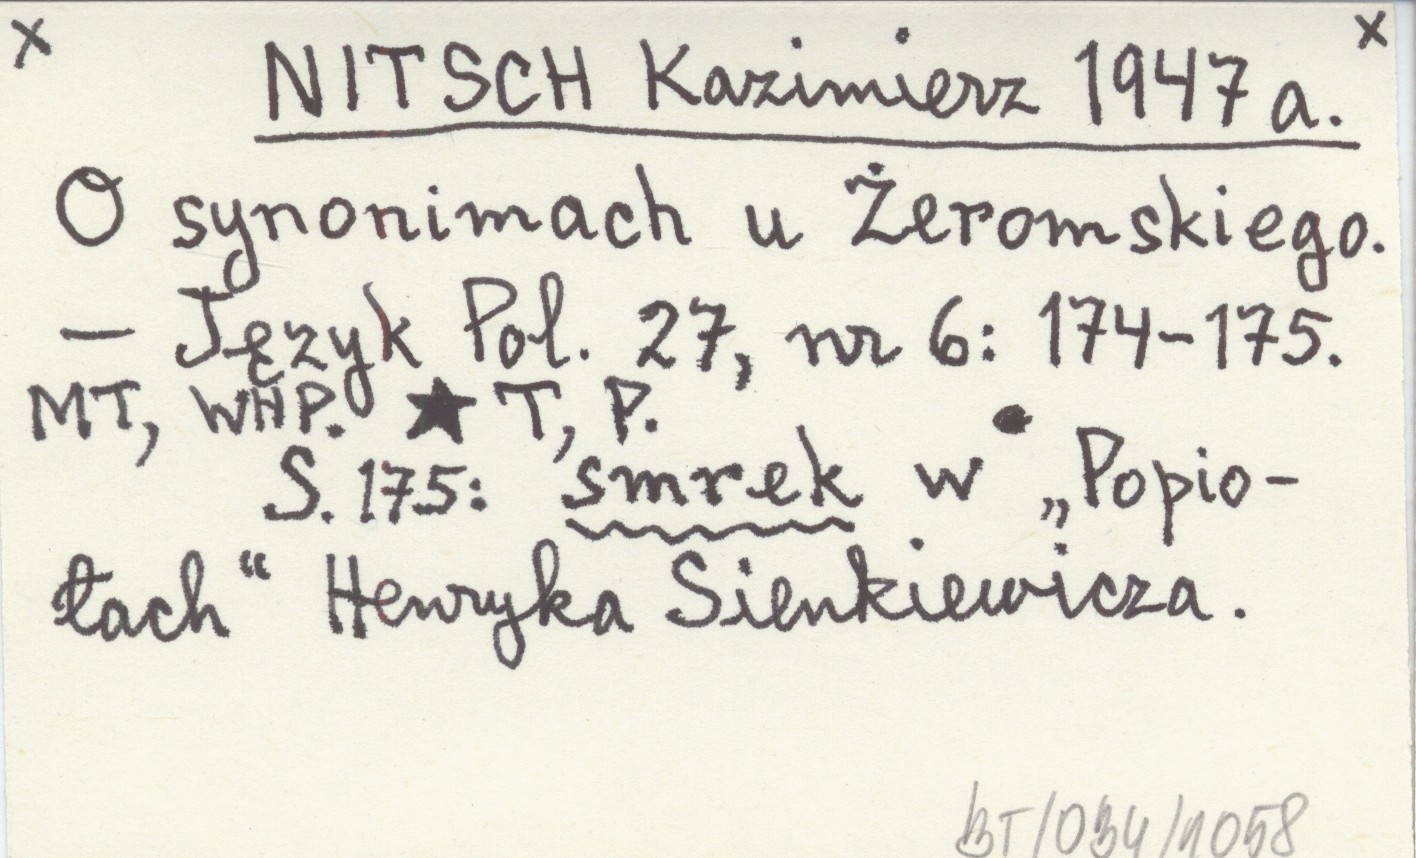 x x
NITSCH Kazimierz 1947 a.
O synonimach u Żeromskiego.
— Język Pol. 27, nr 6: 174-175.
MT, WHP. ★ T, P.
S. 175: smrek w „Popio-
łach“ Henryka Sienkiewicza.
BT/034/1058